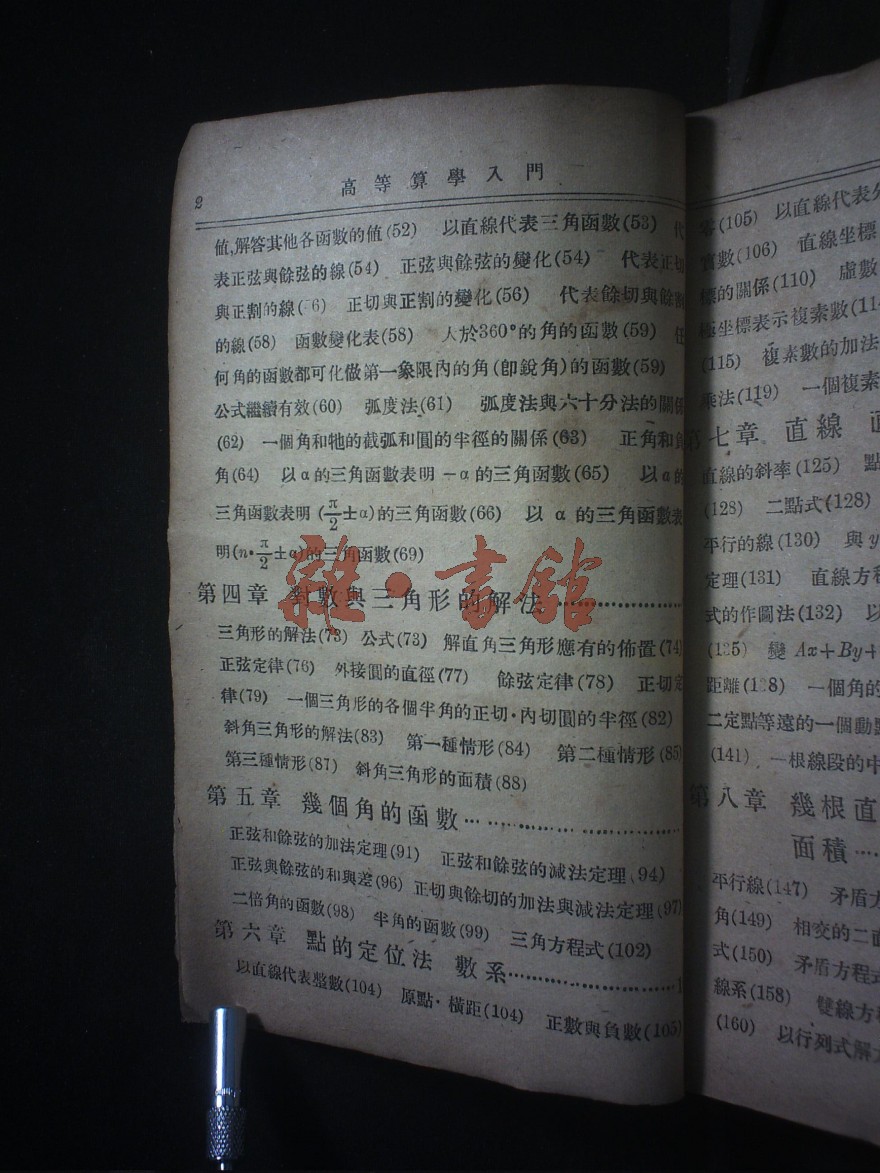 2
高等算學入門
值,解答其他各函數的值(52) 以直線代表三角函數(53) 代
表正弦與餘弦的線(54) 正弦與餘弦的變化(54) 代表正切
與正割的線( 6) 正切與正割的變化(56) 代表餘切與餘割
的線(58) 函數變化表(58) 大於360°的角的函數(59) 任
何角的函數都可化做第一象限內的角(卽銳角)的函數(59)
公式繼續有效(60) 弧度法(61) 弧度法與六十分法的關係
(62) 一個角和牠的截弧和圓的半徑的關係(63) 正角和負
角(64) 以α的三角函數表明-α的三角函數(65) 以α的
三角函數表明(π/2±α)的三角函數(66) 以α的三角函數表
明(n·π/2±α)的三角函數(69)
第四章 對數與三角形的解法
三角形的解法(73) 公式(73) 解直角三角形應有的佈置(74)
正弦定律(76) 外接圓的直徑(77) 餘弦定律(78) 正切定
律(79) 一個三角形的各個半角的正切·內切圓的半徑(82)
斜角三角形的解法(83) 第一種情形(84) 第二種情形(85)
第三種情形(87) 斜角三角形的面積(88)
第五章 幾個角的函數
正弦和餘弦的加法定理(91) 正弦和餘弦的減法定理(94)
正弦與餘弦的和與差(96) 正切與餘切的加法與減法定理(97)
二倍角的函數(98) 半角的函數(99) 三角方程式(102)
第六章 點的定位法 數系
以直線代表整數(104) 原點·橫距(104) 正數與負數(105)
零(105) 以直線代表分
實數(106) 直線坐標
標的關係(110) 虛數
極坐標表示複素數(11
(115) 複素數的加法
乘法(119) 一個複素
第七章 直線
直線的斜率(125) 點
(128) 二點式(128)
平行的線(130) 與y
定理(131) 直線方程
式的作圖法(132) 以
(135) 變Ax+By+
距離(1 8) 一個角的
二定點等遠的一個動點
(141) 一根線段的中
第八章 幾根直
面積
平行線(147) 矛盾方
角(149) 相交的二直
式(150) 矛盾方程式
線系(158) 雙線方程
(160) 以行列式解方
雜·書館